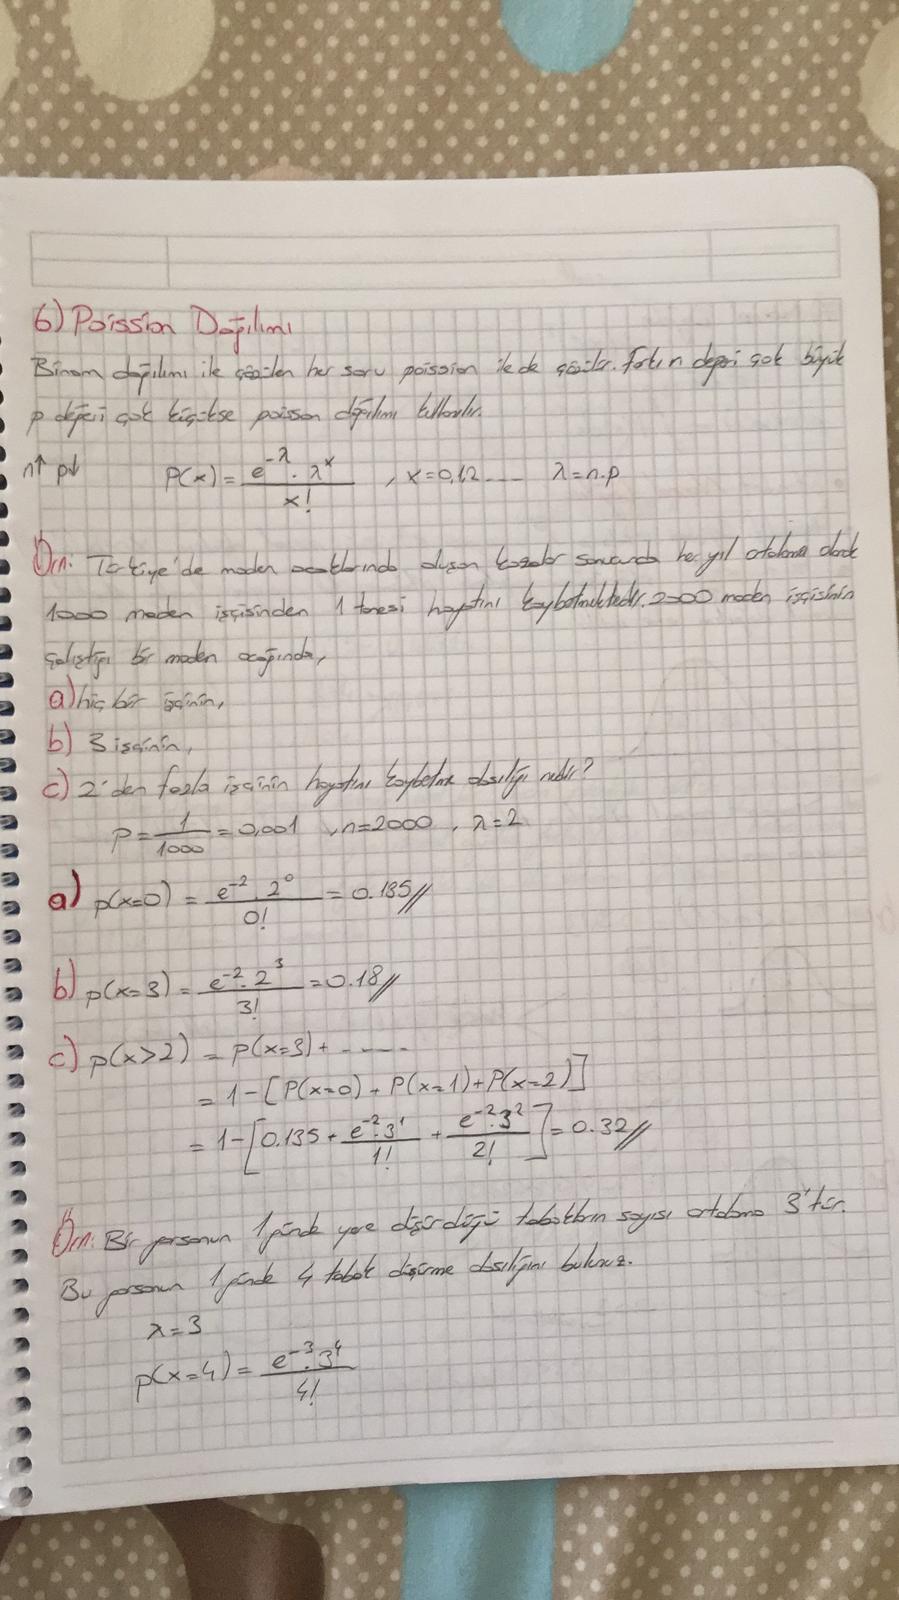 6) Poission Dağılımı
Binom dağılımı ile çözülen her soru poission ile de çözülür. Farkı n değeri çok büyük
p değeri çok küçükse poisson dağılımı kullanılır.
n↑ p↓ P(x) = e^-λ . λ^x / x! , x=0,1,2 .... λ=n.p
Örn: Türkiye'de maden ocaklarında oluşan kazalar sonucunda her yıl ortalama olarak
1000 maden işçisinden 1 tanesi hayatını kaybetmektedir. 2000 maden işçisinin
çalıştığı bir maden ocağında,
a) hiç bir işçinin,
b) 3 işçinin,
c) 2'den fazla işçinin hayatını kaybetme olasılığı nedir?
P = 1/1000 = 0,001 , n=2000 , λ=2
a) p(x=0) = e^-2 . 2^0 / 0! = 0.135//
b) p(x=3) = e^-2 . 2^3 / 3! = 0.18//
c) p(x>2) = p(x=3) + .....
= 1-[P(x=0) + P(x=1) + P(x=2)]
= 1-[0.135 + e^-2 . 3^1 / 1! + e^-2 . 3^2 / 2!] = 0.32//
Örn: Bir garsonun 1 günde yere düşürdüğü tabakların sayısı ortalama 3'tür.
Bu garsonun 1 günde 4 tabak düşürme olasılığını bulunuz.
λ=3
p(x=4) = e^-3 . 3^4 / 4!